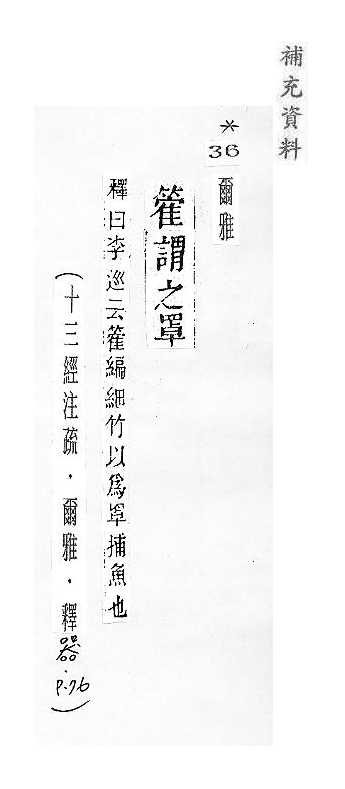 補充資料
*36 爾雅
篧謂之罩
釋曰李巡云篧編細竹以爲罩捕魚也
(十三經注疏．爾雅．釋器．P.76)